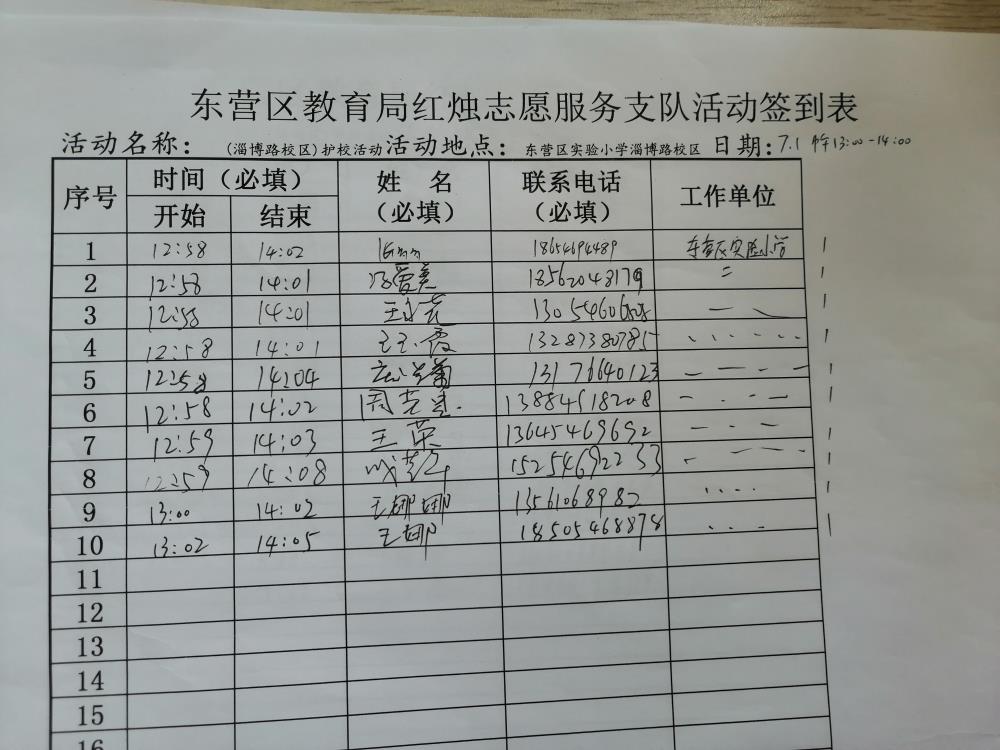 东营区教育局红烛志愿服务支队活动签到表
活动名称：（淄博路校区）护校活动 活动地点：东营区实验小学淄博路校区 日期：7.1 13:00-14:00
序号 时间（必填） 姓 名（必填） 联系电话（必填） 工作单位
开始 结束
1 12:58 14:02 18654694489 东营区实验小学
2 12:58 14:01 冯爱美 18562048179 〃
3 12:58 14:01 13054606808
4 12:58 14:01 王玉霞 13287380785
5 12:58 14:04 13176640123
6 12:58 14:02 13884518208
7 12:59 14:03 王荣 13645469692
8 12:59 14:08 15254692233
9 13:00 14:02 王娜娜 13561068982
10 13:02 14:05 王娜 18505468878
11
12
13
14
15
16